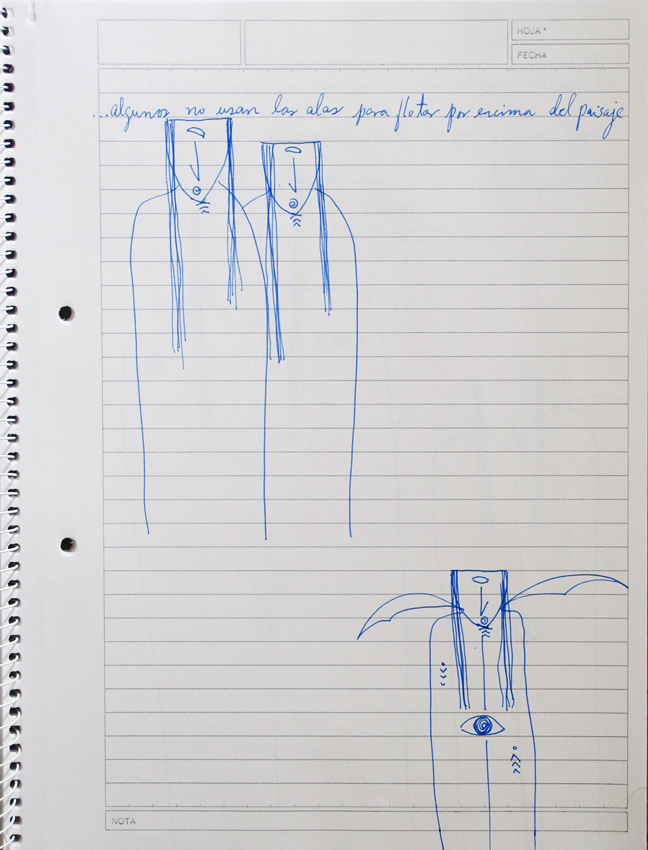 HOJA *
FECHA
...algunos no usan las alas para flotar por encima del paisaje
NOTA